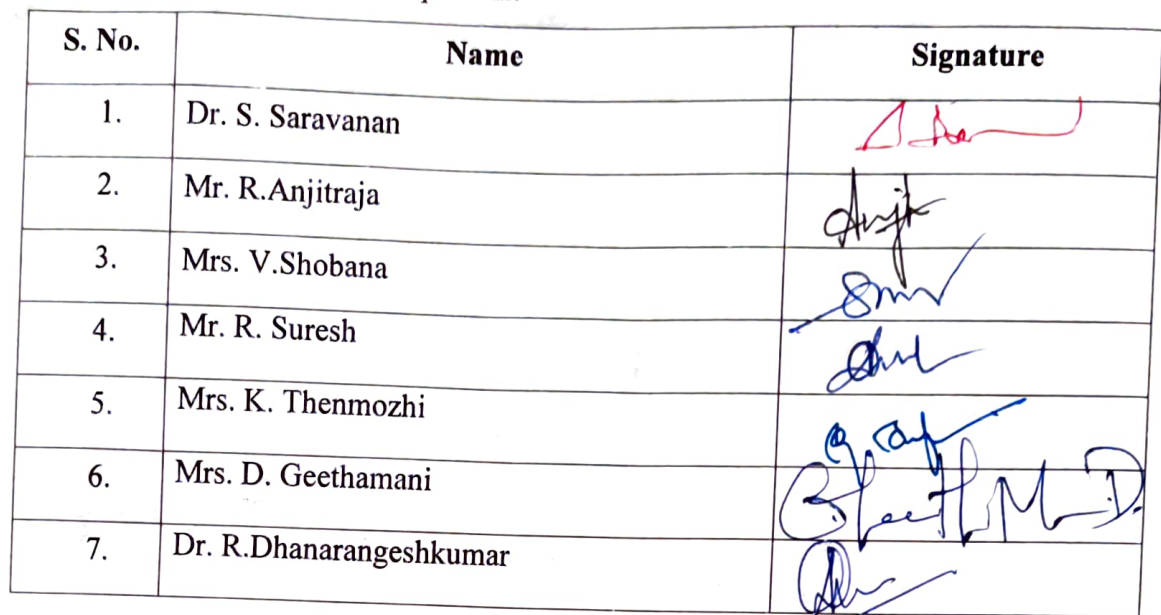 S. No. Name Signature
1. Dr. S. Saravanan
2. Mr. R.Anjitraja
3. Mrs. V.Shobana
4. Mr. R. Suresh
5. Mrs. K. Thenmozhi
6. Mrs. D. Geethamani
7. Dr. R.Dhanarangeshkumar